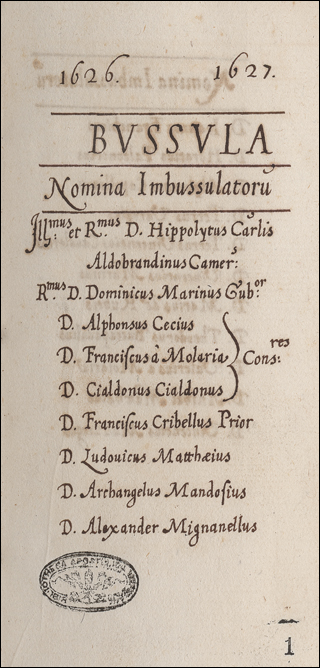 1626. 1627.
BVSSVLA
Nomina Imbussulatorū
Ill:mus et R:mus D. Hippolytus Car:lis
Aldobrandinus Camer:s
R:mus D. Dominicus Marinus Gub:or
D. Alphonsus Cecius
D. Franciſcus à Molaria Cons:res
D. Cialdonus Cialdonus
D. Franciſcus Cribellus Prior
D. Ludouicus Matthæius
D. Archangelus Mandoſius
D. Alexander Mignanellus
BIBLIOTHECA APOSTOLICA
1